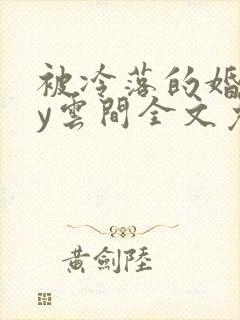 被冷落的婚
y雲間全文
黃劍陸